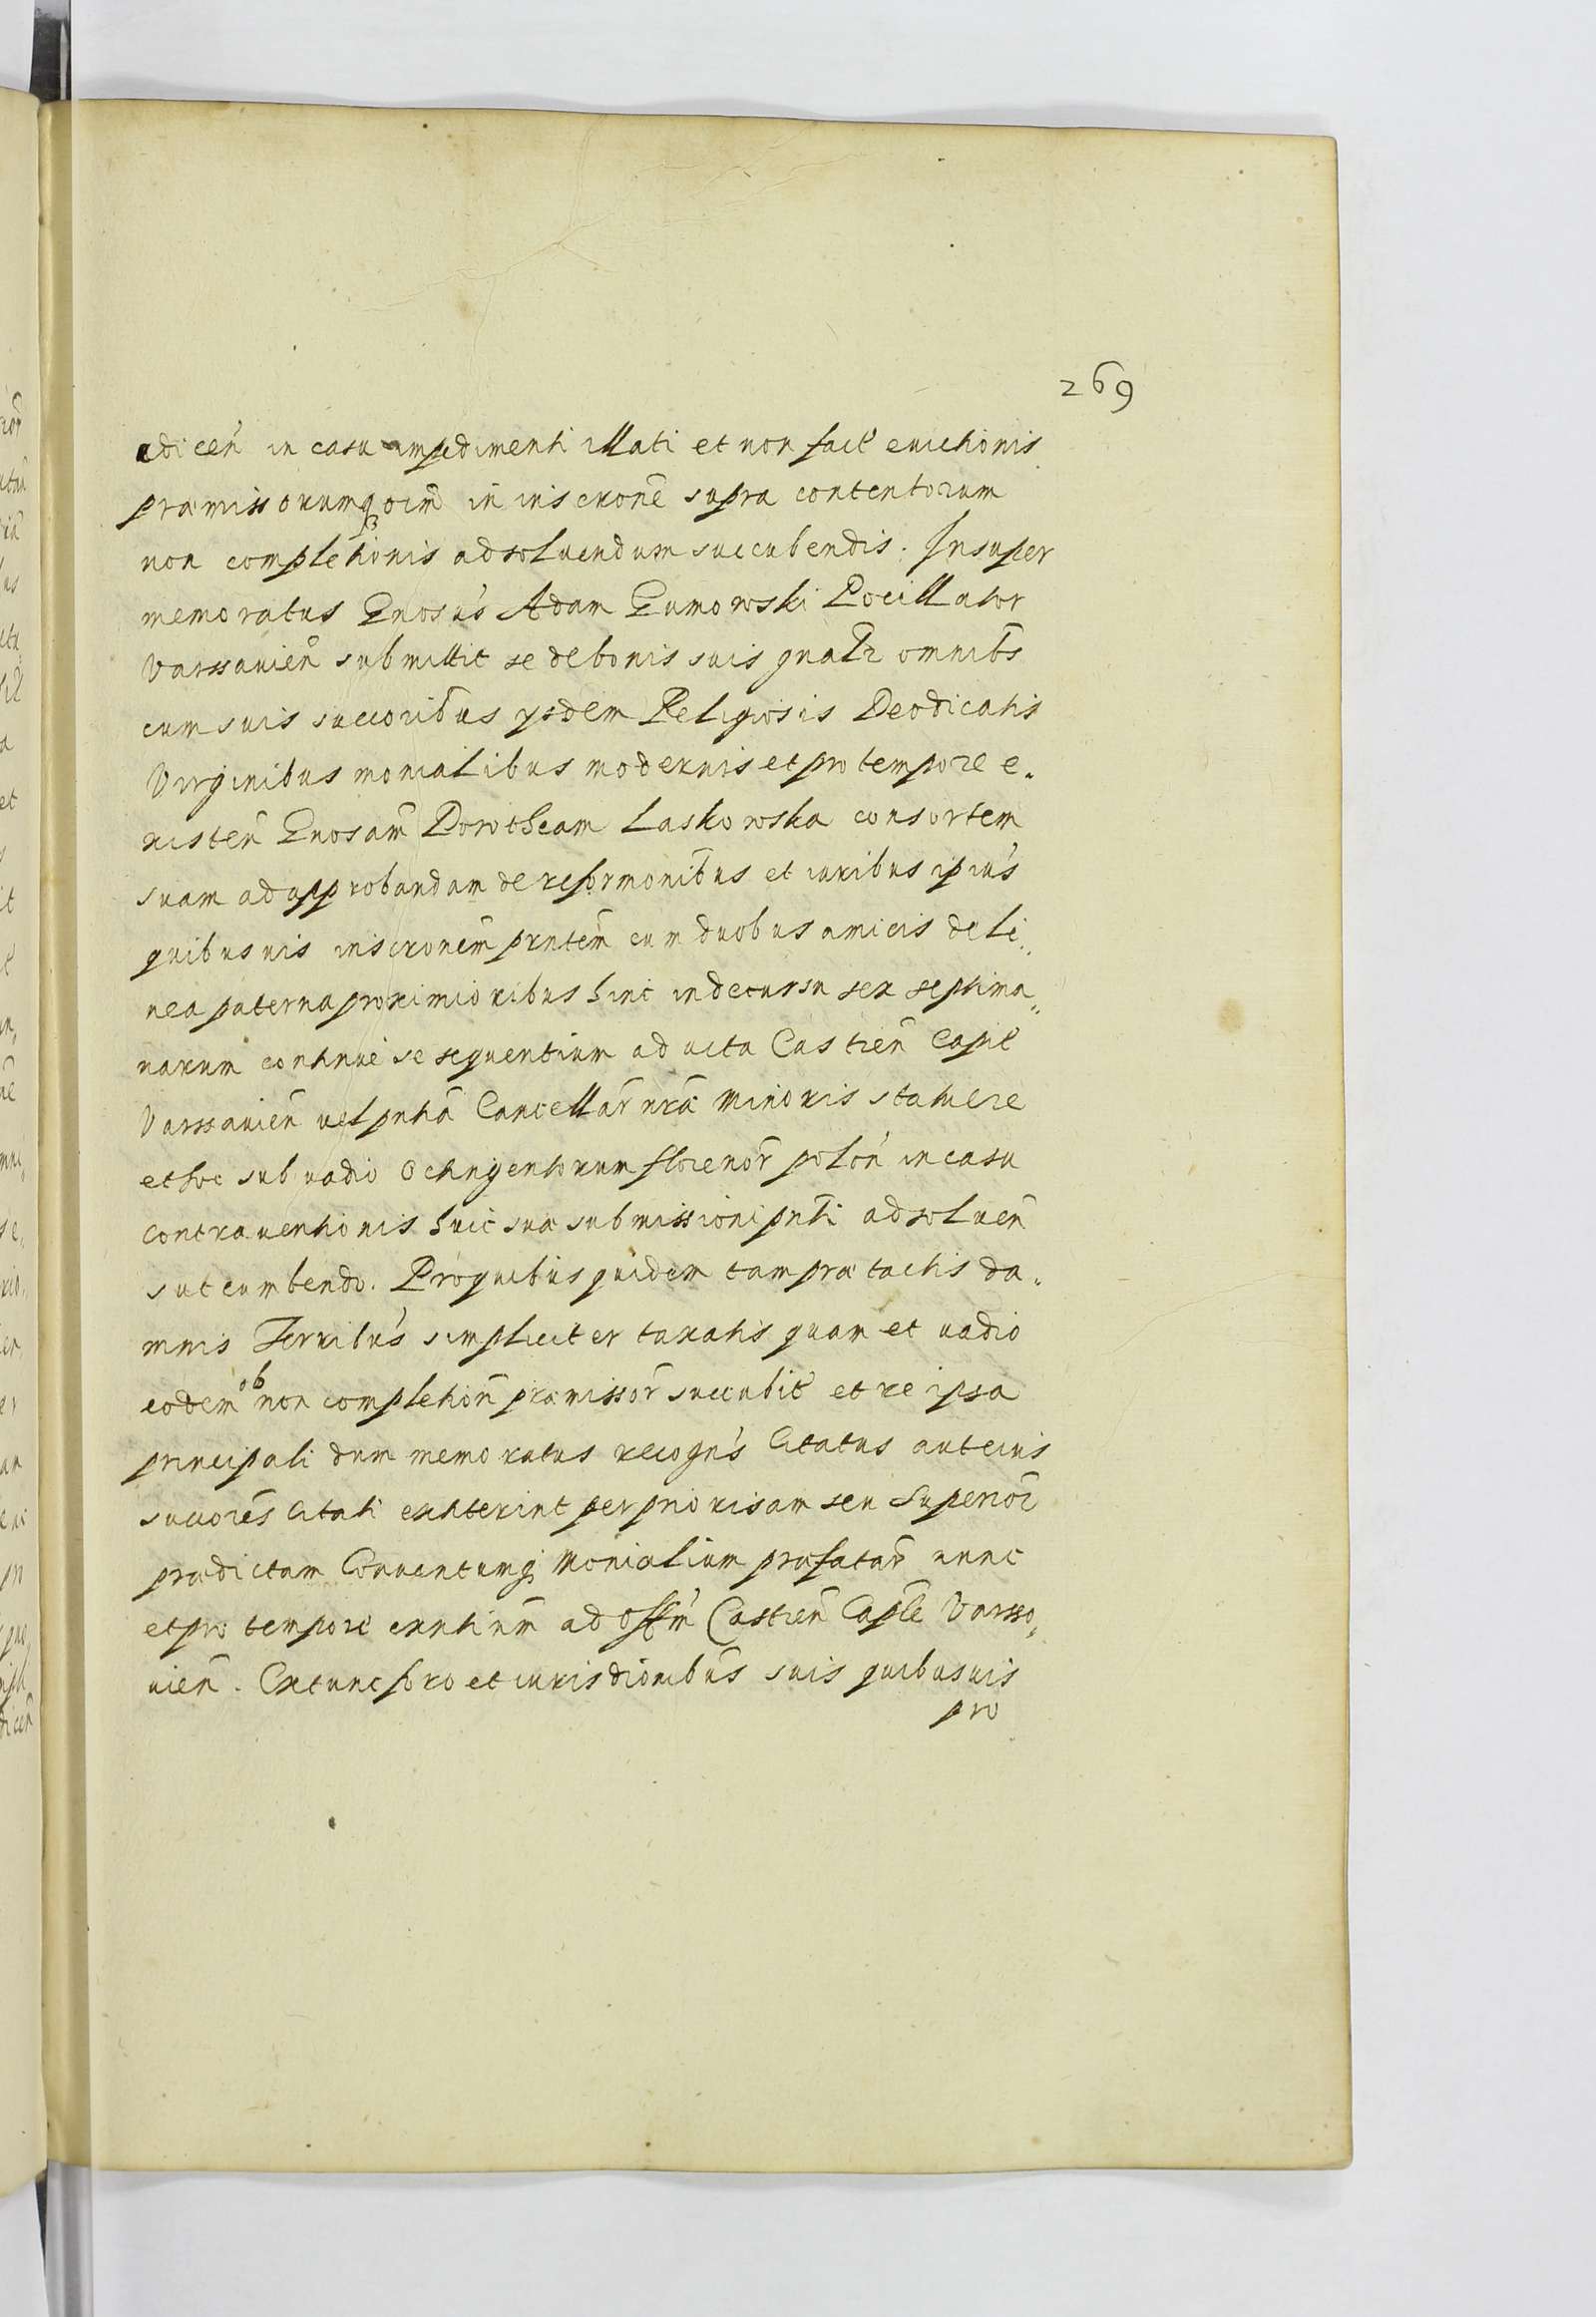 269
edicen̄ in casu impedimenti illati et non fact̄ evictionis
præmissorumq, oim̄ in inscr̄one supra contentorum
non completionis ad solvendum succubendis. Insuper
memoratus Gnosūs Adam Gumowski Pocillator
Varssavien̄ submittit se de bonis suis gnālr omnib̄s
cum suis succorib̄us ysdem Religiosis Deo dicatis
Virginibus monialibus modernis et pro tempore e„
xisten̄ Gnosam̄ Dorotheam Laskowska consortem
suam ad approbandam de reformonib̄us et iuribus ipiūs
quibusuis inscronem̄ prntem̄ cum duobus amicis de li„
nea paterna proximioribus hinc in decursu sex septima„
narum continue se sequentium ad acta Castren̄ Capit̄
Varssavien̄ uel pntiā Cancellar̄ nrā Minoris statuere
et hoc sub uadio octingentorum florenor̄ polon̄ in casu
contrauentionis huic suæ submissioni pnti̅ ad soluen̄
sutcumbendo. Pro quibus quidem tam præ tactis da„
mnis Terribūs simpliciter taxatis quam et uadio
eodem ob non completion̄ præmissor̄ succubit̄ et re ipsa
principali dum memoratus recogn̄s Citatus aut eius
succorēs Citati extiterint per priorisam seu Superior̄
prædictam Conuentumq, Monialium præfatar̄ nunc
et pro tempore exntium̄ ad Offm̄ Castren̄ Caple̅ Varsso„
uien̄. Ex tunc foro et iurisdionib̄us suis quibusuis
pro